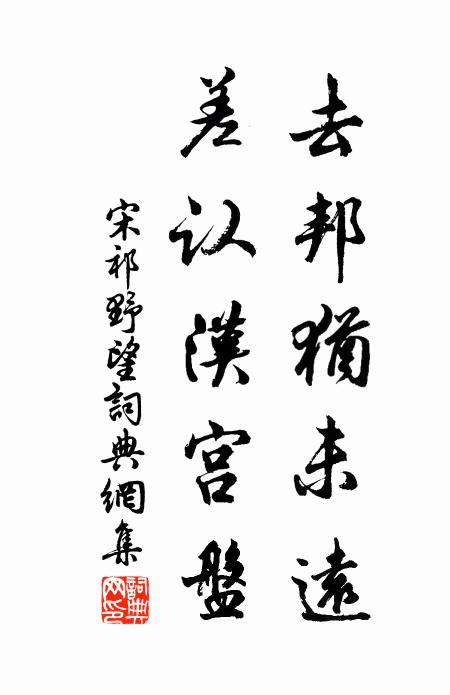 去邦猶未遠
差认漢宫盤
宋祁野望詞典網集
詞典网印